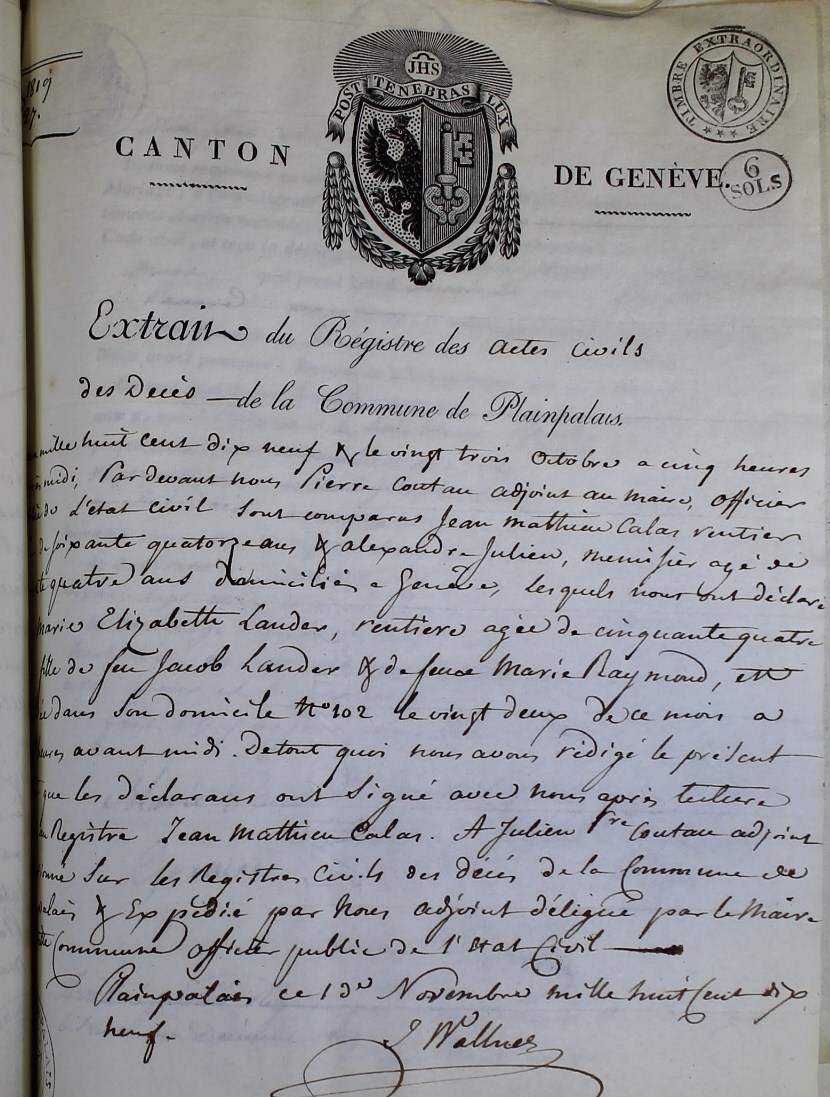 1819
JHS
POST TENEBRAS LUX
TIMBRE EXTRAORDINAIRE
CANTON
DE GENÈVE.
6
SOLS
Extrait du Régistre des actes civils
des Decès de la Commune de Plainpalais.
mille huit cent dix neuf & le vingt trois Octobre a cinq heures
midi, Par devant nous Pierre Coutau adjoint au maire, officier
de L'etat civil sont comparus Jean Mathieu Calas rentier
de soixante quatorze ans & alexandre Julien, menuisier agé de
quatre ans domiciliés a Genève, lesquels nous ont déclaré
marie Elizabeth Lander, rentiere agée de cinquante quatre
fille de feu Jacob Lander & de feue Marie Raymond, est
dans son domicile N° 102 le vingt deux de ce mois a
heures avant midi. De tout quoi nous avons rédigé le présent
que les déclarans ont signé avec nous après lecture
Registre Jean Mathieu Calas. A Julien Pre Coutau adjoint
sur les Registres Civils des décés de la Commune de
palais & Expédié par Nous adjoint déligué par le Maire
Commune officier public de l'Etat Civil
Plainpalais ce 1er Novembre mille huit Cent dix
neuf.